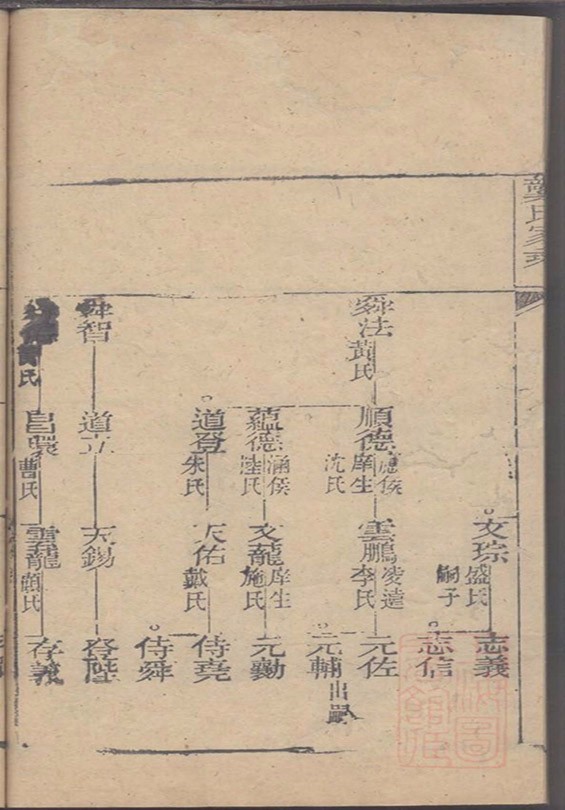 龔氏家
文琮
盛氏
嗣子
志義
志信
舜法
黃氏
順德
應侯
庠生
沈氏
雲鵬
凌遠
李氏
元佐
元輔
出嗣
蘊德
涵侯
陸氏
文蘢
庠生
施氏
元勷
道登
朱氏
天佑
戴氏
侍堯
侍舜
舜智
道立
天錫
登陛
氏
曹氏
雲蘢
顧氏
存義